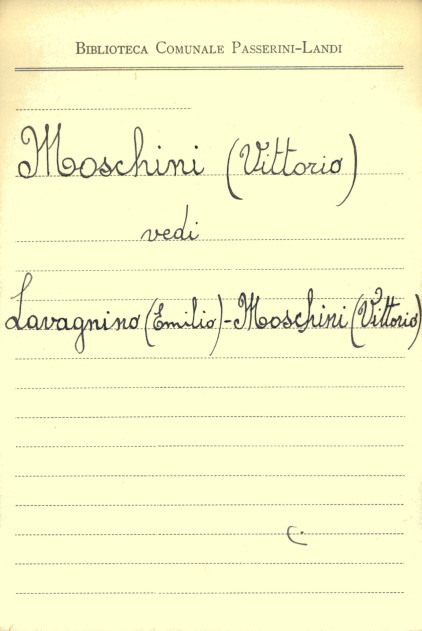 BIBLIOTECA COMUNALE PASSERINI-LANDI
Moschini (Vittorio)
vedi
Lavagnino (Emilio) - Moschini (Vittorio)
C.